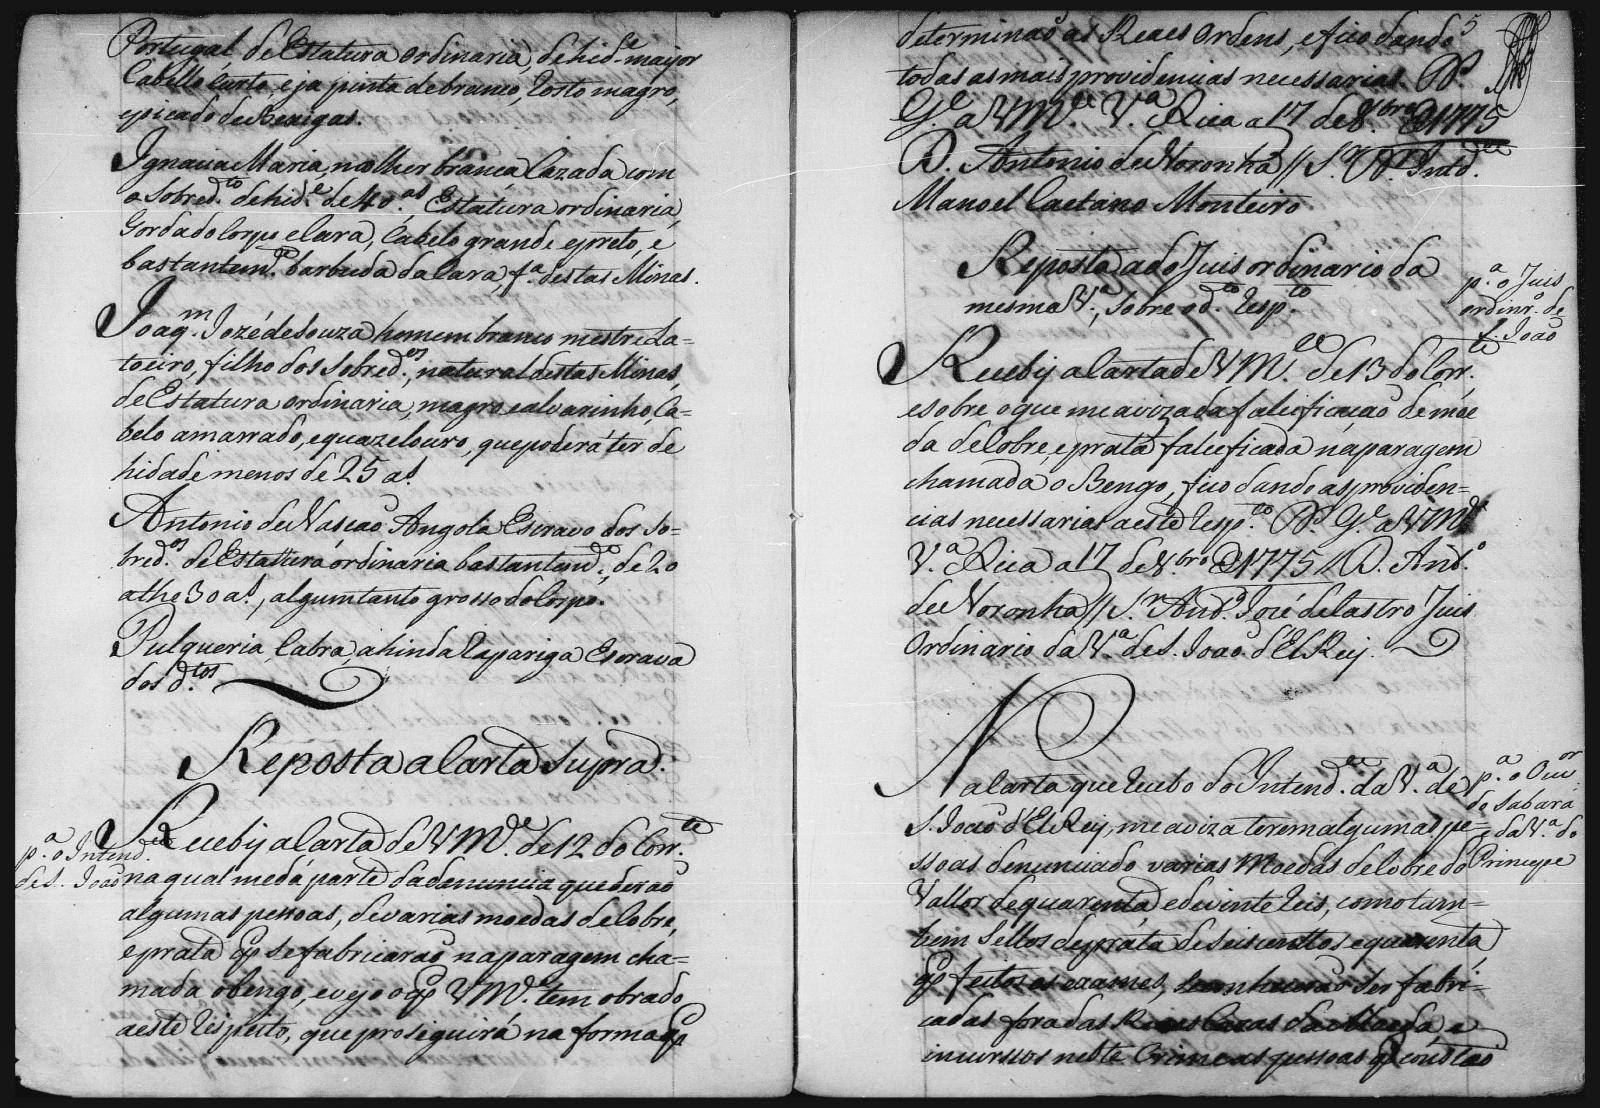 Portugal, de Estatura ordinaria, de hid.e mayor
Cabello Curto, e ja pinta de branco, Rosto magro,
e picado de Bexigas.
Ignacia Maria, molher branca Cazada com
o Sobred.to de hid.e de 40 a.s Estatura ordinaria,
Gorda do Corpo e Cara, Cabelo grande e preto, e
bastantem.te barbuda da Cara, f.a destas Minas.
Joaq.m Jozé de Souza homem branco mestre La=
toeiro, filho dos Sobred.os, natural destas Minas,
de Estatura ordinaria, magro e alvarinho, Ca=
belo amarrado, e quaze Louro, que poderá ter de
hidade menos de 25 a.s
Antonio de Nascaõ Angola Escravo dos So=
bred.os de Estatura ordinaria bastantem.te, de 20
athe 30 a.s, algum tanto grosso do Corpo.
Pulqueria, Cabra, ahinda Rapariga Escrava
dos d.tos
Reposta a Carta Supra.
p.a o Intend.te
de S. Joaõ
Recebij a Carta de VM.ce de 12 do Corr.te
na qual me dá parte da denuncia que deraõ
algumas pessoas, de varias moedas de Cobre,
e prata q̃ se fabricaraõ na paragem cha=
mada o bengo, e vejo o q̃ VM.ce tem obrado
a este Respeito, que proseguirá na forma q̃
5
determinaõ as Reaes Ordens, e fico dando
todas as mais providencias necessarias. D.s
G.e a VM.ce V.a Rica a 17 de 8.bro de 1775
D. Antonio de Noronha // S.r D.r Intd.te
Manoel Caetano Monteiro.
Reposta a do Juis ordinario da
mesma V.a, Sobre o d.to Resp.to
p.a o Juis
ordinr.o de
S. Joaõ
Recebij a Carta de VM.ce de 13 do Corr.te
e sobre o que me aviza da falcificaçaõ de moe
da de Cobre, e prata falcificada na paragem
chamada o Bengo, fico dando as providen=
cias necessarias a este Resp.to D.s G.e a VM.ce
V.a Rica a 17 de 8.bro de 1775 // D. Ant.o
de Noronha // S.r And.e José de Castro Juis
Ordinario da V.a de S. Joaõ d'El Rey.
p.a o Ouv.or
de Sabará
e da V.a do
Principe
Na Carta que Recebo do Intend.te da V.a de
S. Joaõ d'El Rey, me aviza terem algumas pe=
ssoas denunciado varias Moedas de Cobre do
Vallor de quarenta e de vinte Reis, como tam=
bem Sellos de prata de Seis centtos e quarenta,
q̃ feitos os exames, se conheceraõ Ser fabri=
cadas fora das Reaes Cazas da Moeda e
incurssos neste Crime as pessoas q̃ constaõ